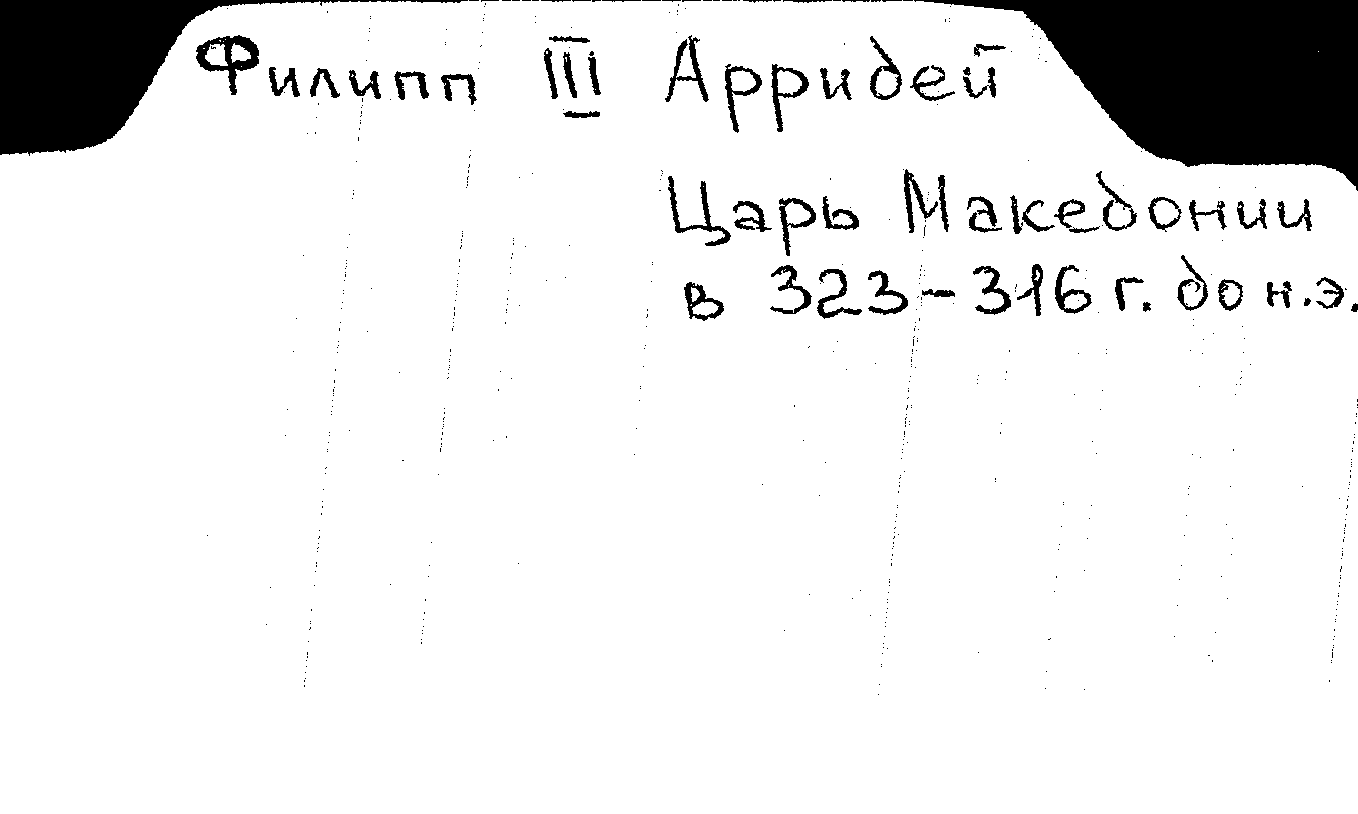 Филипп III Арридей
Царь Македонии
в 323-316 г. до н.э.